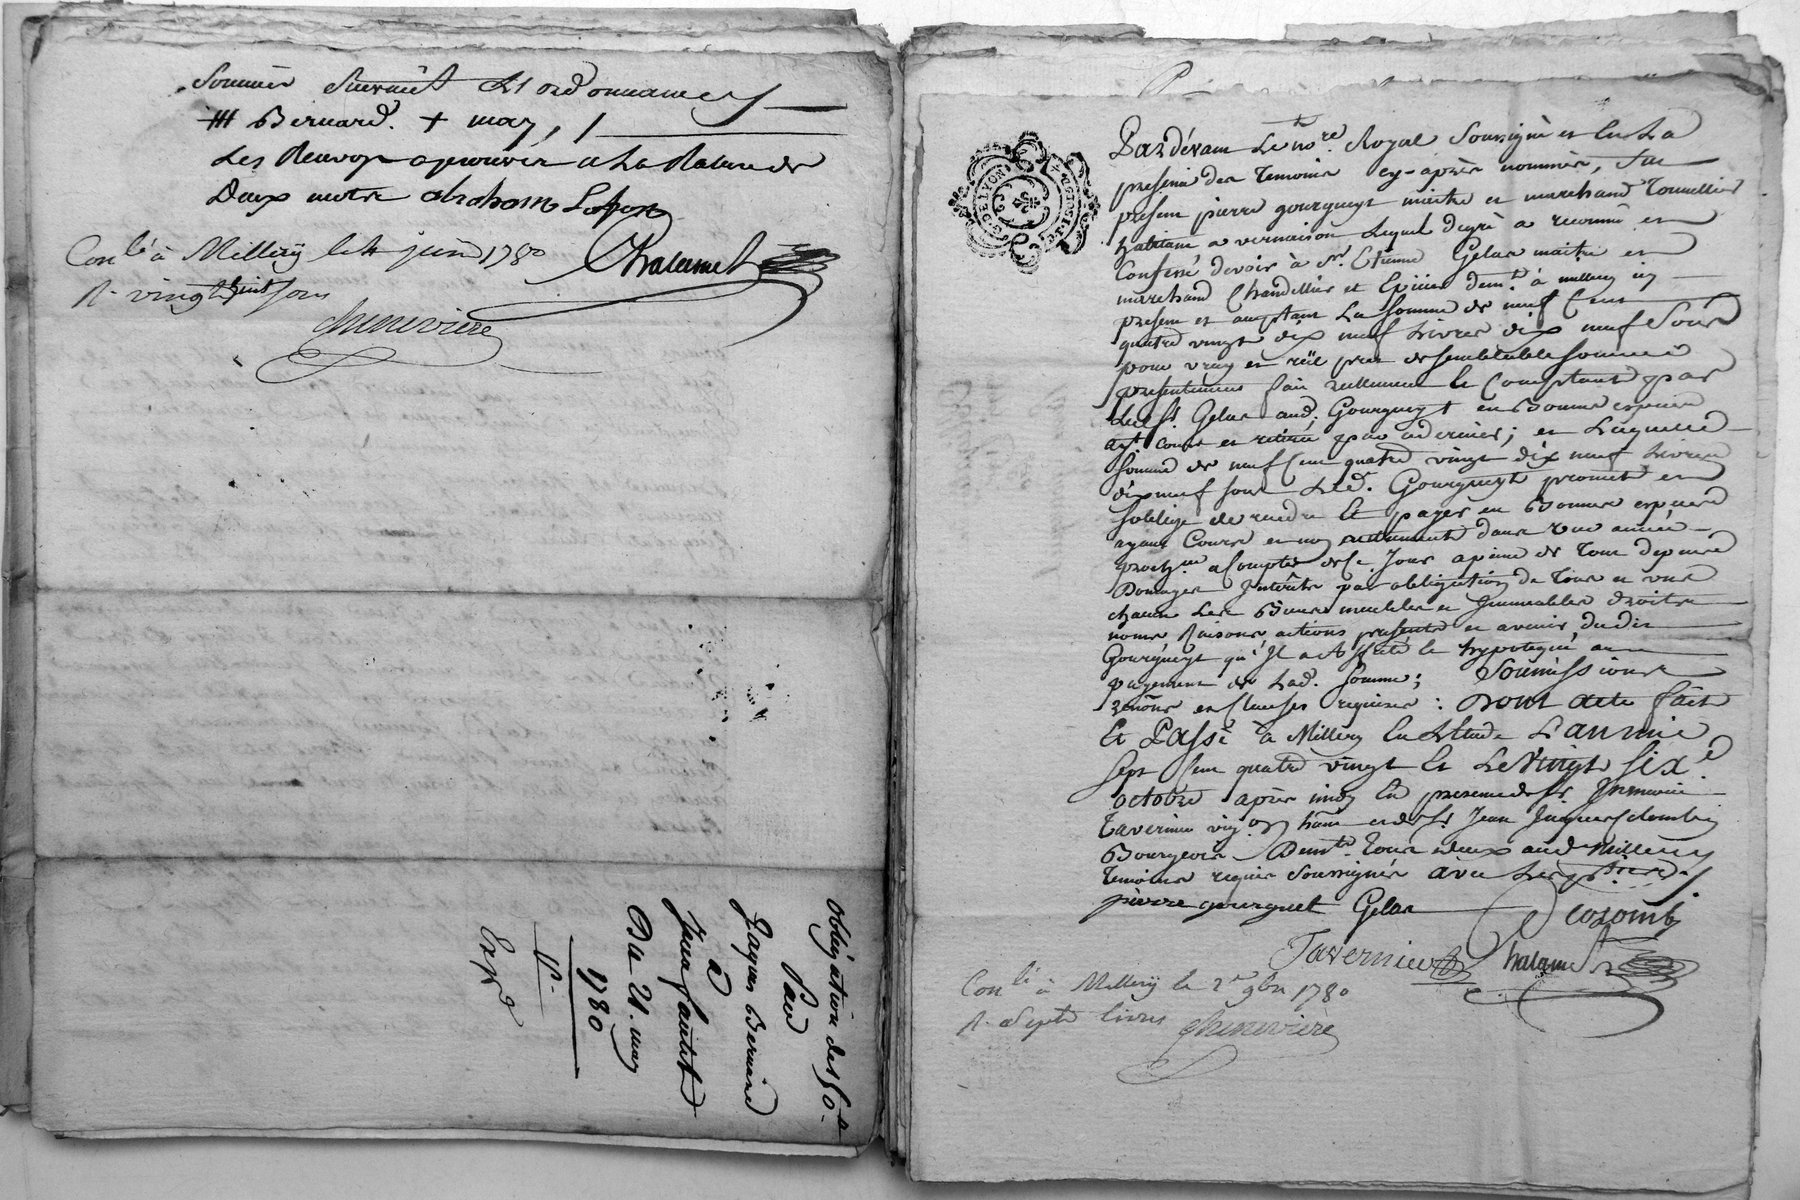 Sommés suivant Les ordonnances
Bernard. + may, /
Les Renvoys approuvés a La Rature de
Deux mots abraham
Chalamel
Conlé à Millery le 4 juin 1780
R. vingt huit sous
cheneviere
obligation de
Par
Jaques Bernard
à
Jean
Du 21. may
1780
Exp.d
DE LYON
Pardevant Le no.re Royal Soussigné et En La
presence des temoins cy-après nommés, fut
present pierre gourgueyt maitre et marchand Tonnellier
habitant a vernaison Lequel degré a reconnu et
Confessé devoir à Sr. Etienne Gelas maitre et
marchand Chandellier et Epicier demt. à millery icy
present et acceptant La somme de neuf Cent
quatre vingt dix neuf Livres dix neuf Sous
pour vray et réel pret de semblable somme
presentement fait reellement et Comptant par
Led. Sr. Gelas aud. Gourgueyt en Bonnes especes
ayt cours et retiré par ce dernier; et Laquelle
somme de neuf Cent quatre vingt dix neuf Livres
dix neuf sous Led. Gourgueyt promet et
soblige de rendre Et payer en Bonnes especes
ayant Cours et non autrement dans une année
proch.ne a Compter de Ce Jour a peine de Tous depens
Domages Interêts par obligation de Tous et uns
chacun Les Biens meubles et Immeubles droits
noms Raisons actions presents et avenir dudit
Gourgueyt qu'Il a Affecté et hypotequé au
payement de Lad. somme; Soumissions
renons et Clauses requises: Dont acte fait
Et Passé à Millery En Létude L'année
sept Cent quatre vingt Et Le vingt six.e
octobre après midy En presence de Sr.
Tavernier vig.on et de Sr. Jean Jaques Colomb
Bourgeois Demts. Tous deux aud. Millery
Temoins requis Soussignés avec Les parties
pierre gourguet Gelas
Colomb
Tavernier Chalamel
Conlé à Millery le 2e 9bre 1780
R. Sept livres cheneviere